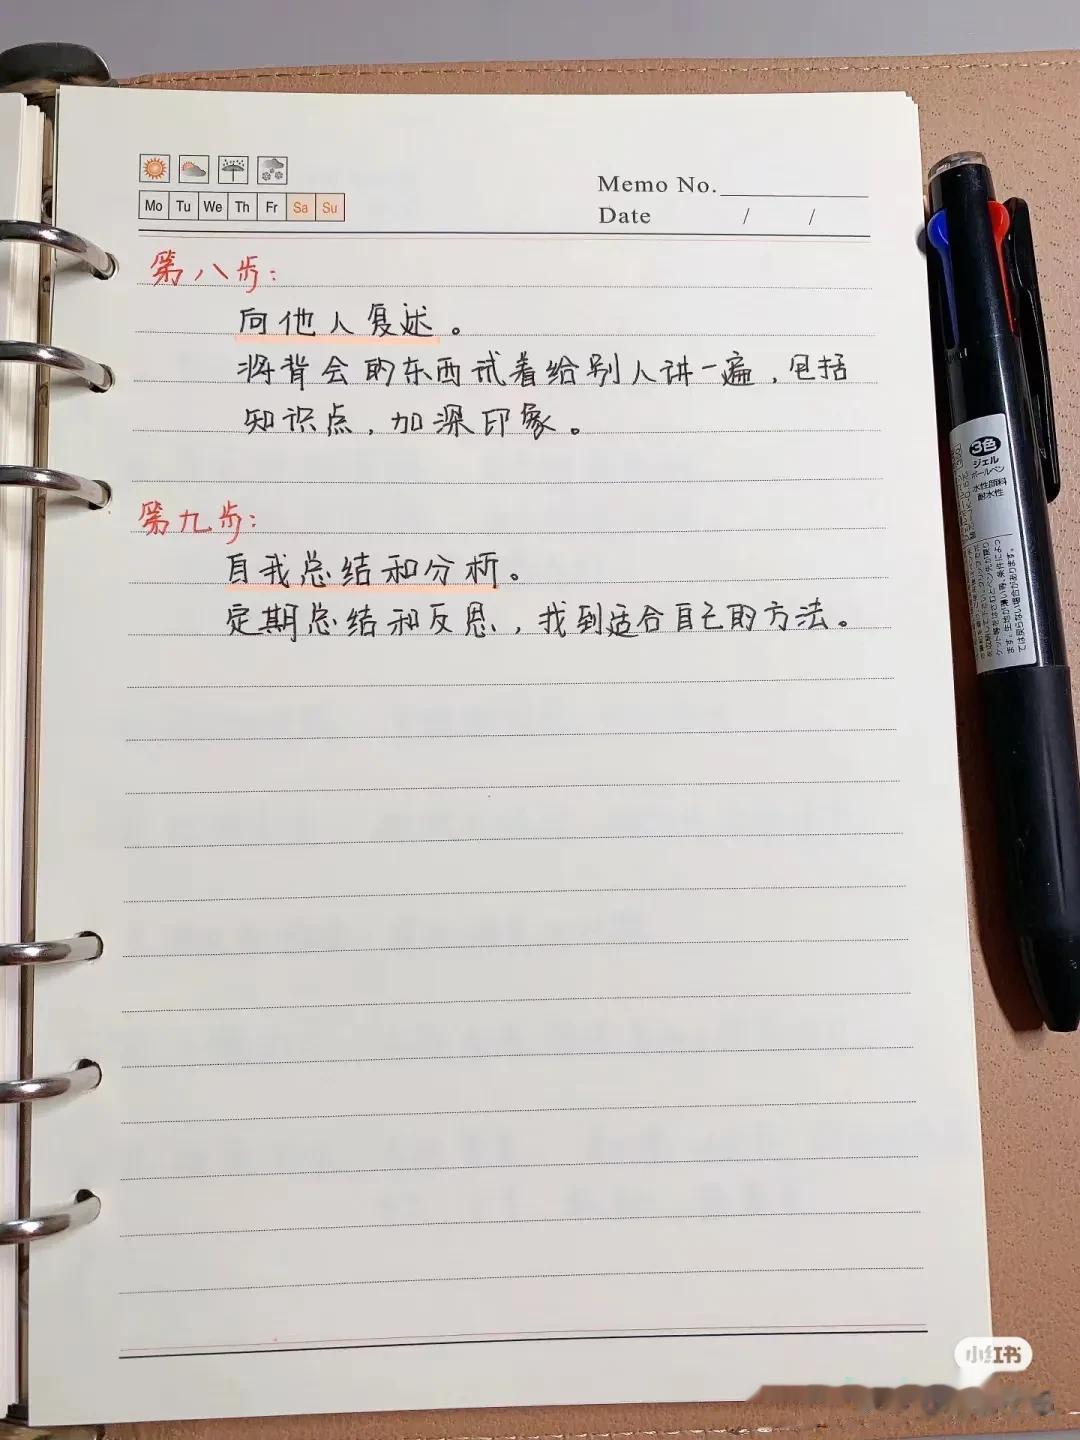 Mo Tu We Th Fr Sa Su
Memo No.
Date / /
第八步：
向他人复述。
将背会的东西试着给别人讲一遍，包括
知识点，加深印象。
第九步：
自我总结和分析。
定期总结和反思，找到适合自己的方法。
3色
ジェル
ボールペン
水性顔料
耐水性
小红书